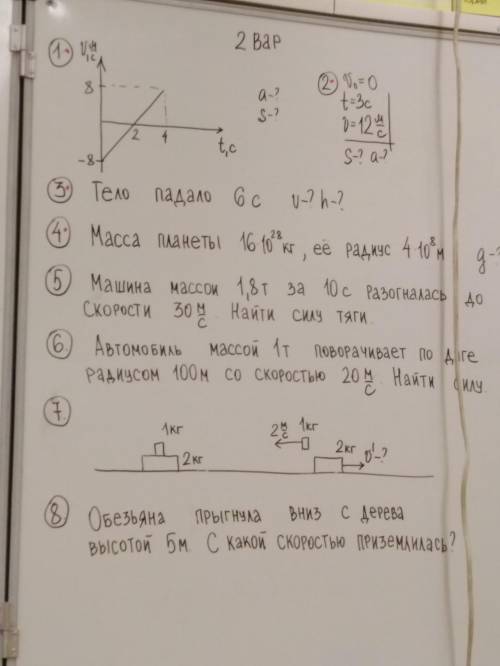 2 вар
1• V, м/с
8
-8
2
4
t,с
a-?
S-?
2• V₀=0
t=3c
V=12 м/с
S-? a-?
3• Тело падало 6с v-? h-?
4• Масса планеты 16·10²⁸кг, её радиус 4·10⁸м g-?
5 Машина массой 1,8т за 10с разогналась до
скорости 30 м/с Найти силу тяги.
6. Автомобиль массой 1т поворачивает по дуге
радиусом 100м со скоростью 20 м/с Найти силу.
7.
1кг
2кг
2 м/с
1кг
2кг
υ'-?
8. Обезьяна прыгнула вниз с дерева
высотой 5м. С какой скоростью приземлилась?